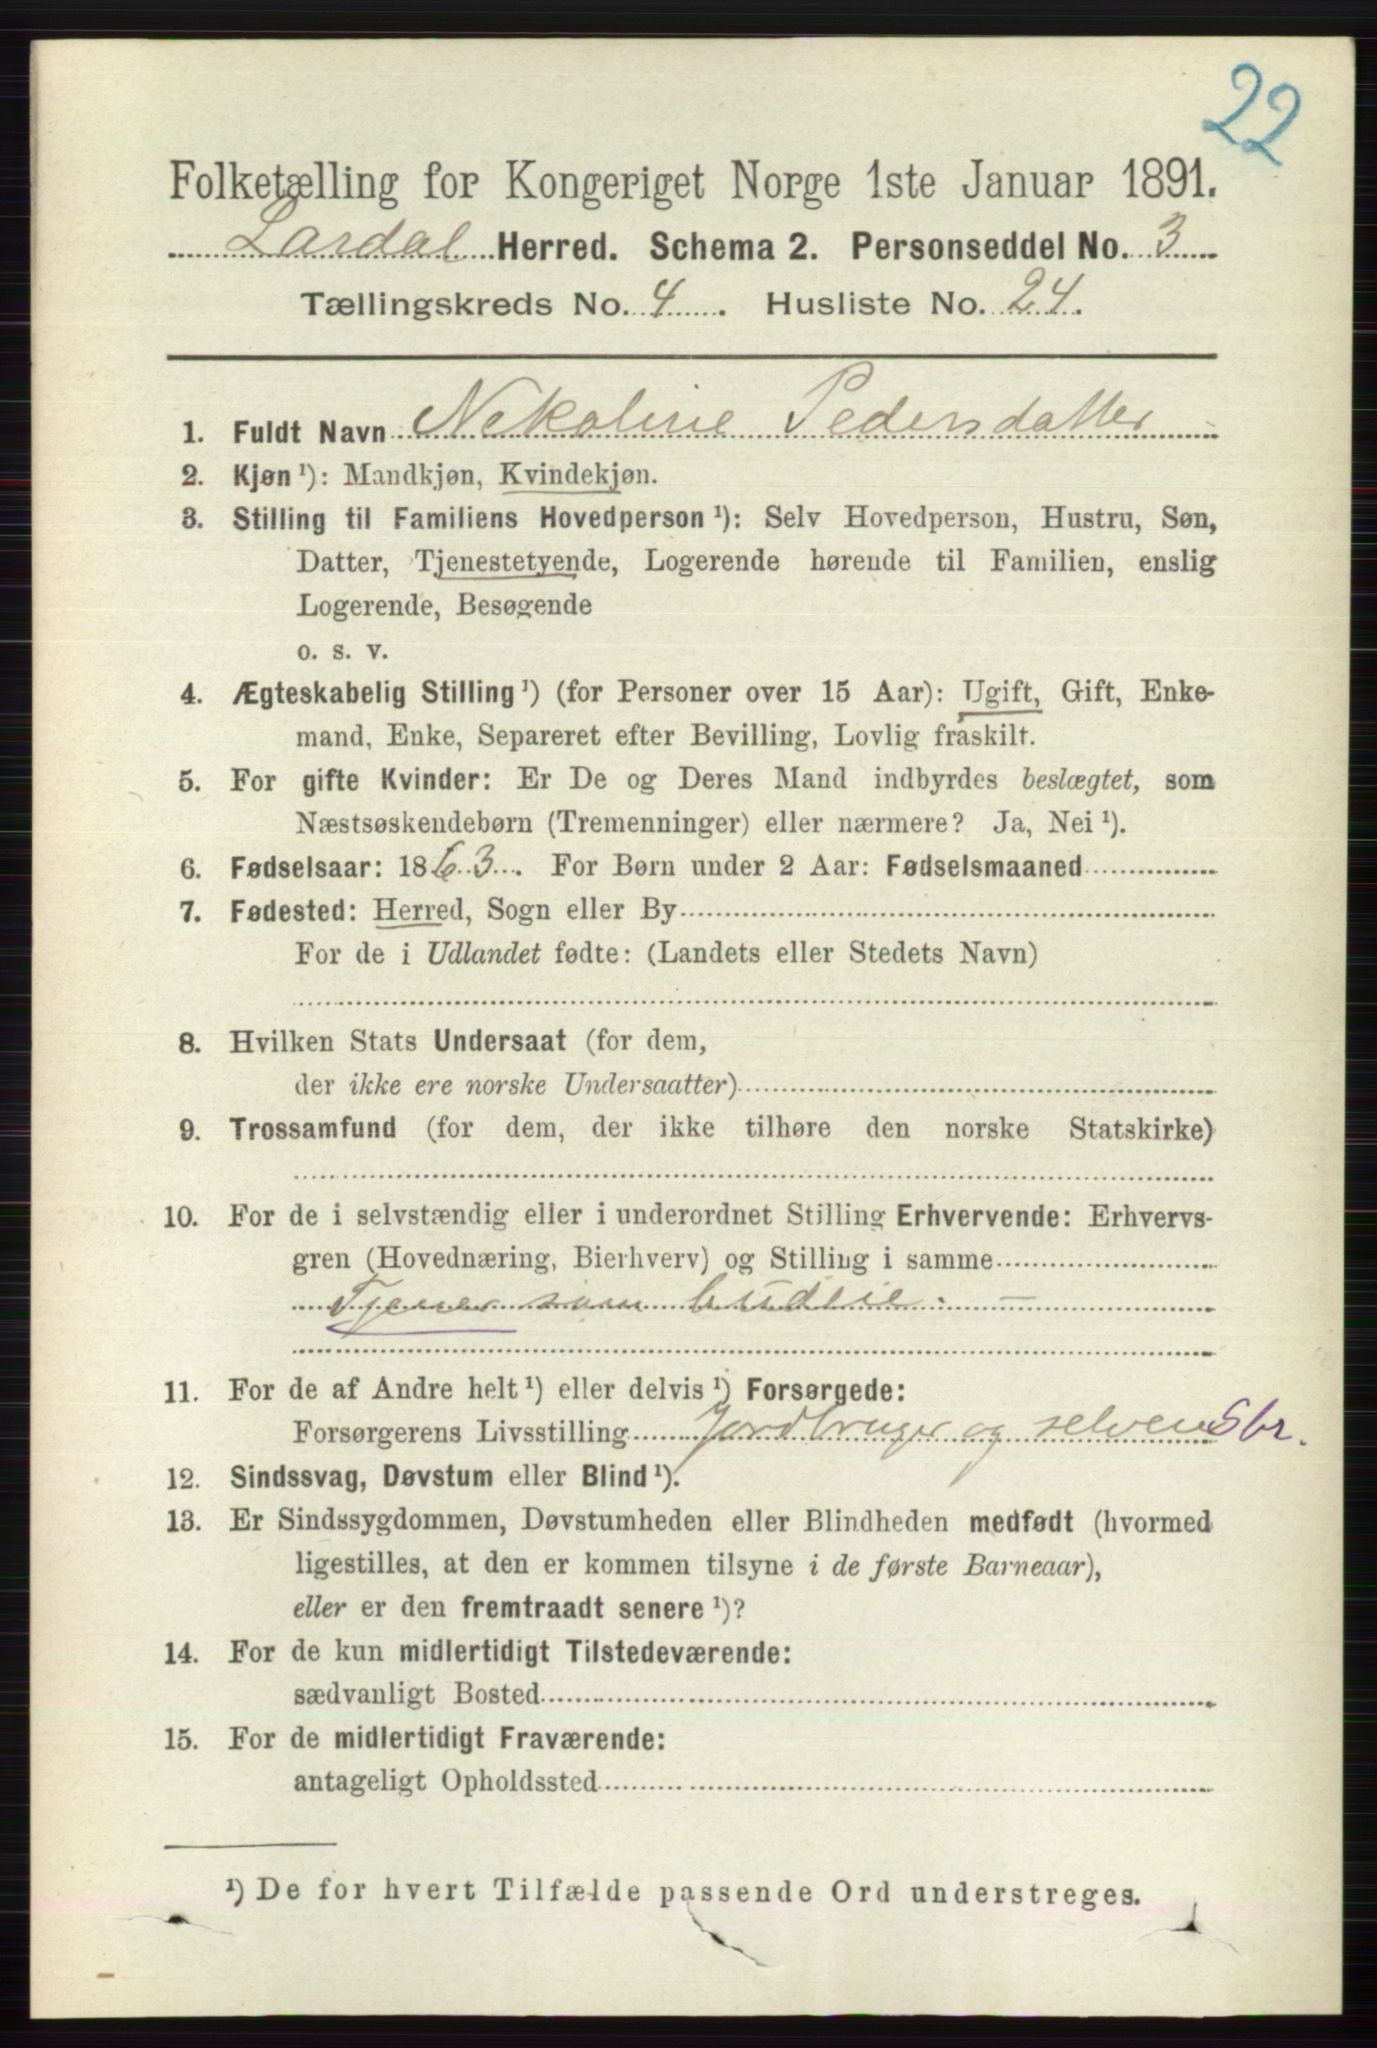 22
Folketælling for Kongeriget Norge 1ste Januar 1891.
Lardal Herred. Schema 2. Personseddel No. 3
Tællingskreds No. 4. Husliste No. 24.
1. Fuldt Navn Nekoline Pedersdatter
2. Kjøn¹): Mandkjøn, Kvindekjøn.
3. Stilling til Familiens Hovedperson¹): Selv Hovedperson, Hustru, Søn,
Datter, Tjenestetyende, Logerende hørende til Familien, enslig
Logerende, Besøgende
o. s. v.
4. Ægteskabelig Stilling¹) (for Personer over 15 Aar): Ugift, Gift, Enke-
mand, Enke, Separeret efter Bevilling, Lovlig fraskilt.
5. For gifte Kvinder: Er De og Deres Mand indbyrdes beslægtet, som
Næstsøskendebørn (Tremenninger) eller nærmere? Ja, Nei¹).
6. Fødselsaar: 1863. For Børn under 2 Aar: Fødselsmaaned
7. Fødested: Herred, Sogn eller By
For de i Udlandet fødte: (Landets eller Stedets Navn)
8. Hvilken Stats Undersaat (for dem,
der ikke ere norske Undersaatter)
9. Trossamfund (for dem, der ikke tilhøre den norske Statskirke)
10. For de i selvstændig eller i underordnet Stilling Erhvervende: Erhvervs-
gren (Hovednæring, Bierhverv) og Stilling i samme
Tjener som budeie. —
11. For de af Andre helt¹) eller delvis¹) Forsørgede:
Forsørgerens Livsstilling Jordbruger og selveier Sbr.
12. Sindssvag, Døvstum eller Blind¹).
13. Er Sindssygdommen, Døvstumheden eller Blindheden medfødt (hvormed
ligestilles, at den er kommen tilsyne i de første Barneaar),
eller er den fremtraadt senere¹)?
14. For de kun midlertidigt Tilstedeværende:
sædvanligt Bosted
15. For de midlertidigt Fraværende:
antageligt Opholdssted
¹) De for hvert Tilfælde passende Ord understreges.